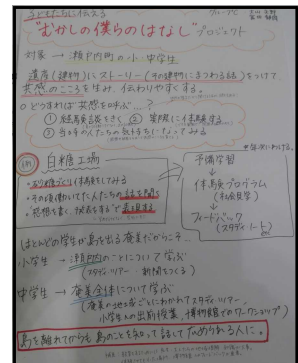 子どもたちに伝える
グループC
"むかしの僕らのはなし"プロジェクト
対象 → 瀬戸内町の小・中学生
遺産(建物)にストーリー(その建物にまつわる話)をつけて
共感のこころを生み、伝わりやすくする。
○どうすれば共感を呼ぶ....?
① 経験談をきく ② 実際に体験する
③ 当時の人たちの気持ちになってみる
例 白糖工場
・砂糖づくり体験をしてみる
・その頃働いていた人たちの話を聞く
・"感想を書く、発表をする"で表現する
予備学習
↓
体験プログラム
(社会見学)
↓
フィードバック
(スタディノート)
ほとんどの学生が島を出る奄美だからこそ…
小学生 → 瀬戸内のことについて学ぶ
(スタディツアー・新聞をつくる)
中学生 → 奄美全体について学ぶ
(奄美の地域ごとにわかれてスタディツアー,
小学生への出前授業, 博物館でのワークショップ)
島を離れてからも島のことを知って話してつなめられる人に。